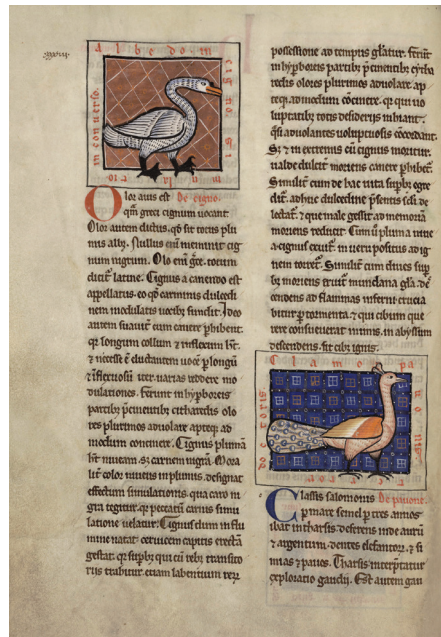 Albedo in
cigno si
in converso
De cigno.
Olor auis est
qm̄ greci cignum uocant.
Olor autem dictus. qd sit totus plu
mis albꝰ. Nullus eni meminit cig
num nigrum. Olo eni gr̄e. totum
dicit̄ latine. Cignus a canendo est
appellatus. eo qd carminis dulcedi
nem modulatis uocibꝫ fundit. Ideo
autem suauit̄ eum canere phibent.
qꝛ longum collum ⁊ inflexum ht̄.
⁊ necesse ē eluctantem uocē p longū
⁊ flexuosū iter uarias reddere mo
dulationes. Ferunt in hyboreis
partibꝫ p̄cinentibꝫ citharedis olo
res plurimos aduolare apteqꝫ ad
modum concinere. Cignus plumā
ht̄ niueam. sꝫ carnem nigrā. Mora
lit̄ color niueus in plumis. designat
effectum simulationis. qua caro ni
gra tegitur. qꝛ peccatū carnis simu
latione uelatur. Cignus dum in flu
mine natat. ceruicem capitis erectā
gestat. qꝛ supbꝫ qui cū rebꝫ transito
riis trahitur. etiam labentium rerꝫ
possessione ad tempus gl̄atur. Ferūt
in hyboreis partibꝫ p̄cinentibꝫ cytha
redis olores plurimos aduolare. ap
teqꝫ ad modum c̄cinere. qꝛ qui uo
luptatibꝫ totis desideriis inhiant.
q̄si aduolantes uoluptuosis c̄cordant.
Sꝫ ⁊ in extremis cū cignus moritur.
ualde dulcit̄ moriens canere phibet̄.
Similit̄ cum de hac uita supbꝰ egre
dit̄. adhuc dulcedine p̄sentis sc̄li. de
lectat̄. ⁊ que male gessit ad memoriā
moriens reducit. Cum ū pluma niue
a cignus exuit̄. in ueru positus ad ig
nem torret̄. Similit̄ cum diues sup
bꝰ moriens exuit̄ mundana gl̄a. de
cendens ad flammas inferni crucia
bitur p tormenta. ⁊ qui cibum que
rere consueuerat in imis. in abyssum
descendens. fit cibꝰ ignis.
Clamor pa
doctoris.
De pauone.
Classis salomonis
p mare semel p tres annos
ibat in tharsis. deferens inde aurū
⁊ argentum. dentes elefantorꝫ. ⁊ si
mias ⁊ pauos. Tharsis interp̄tatur
exploratio gaudii. Est autem gau